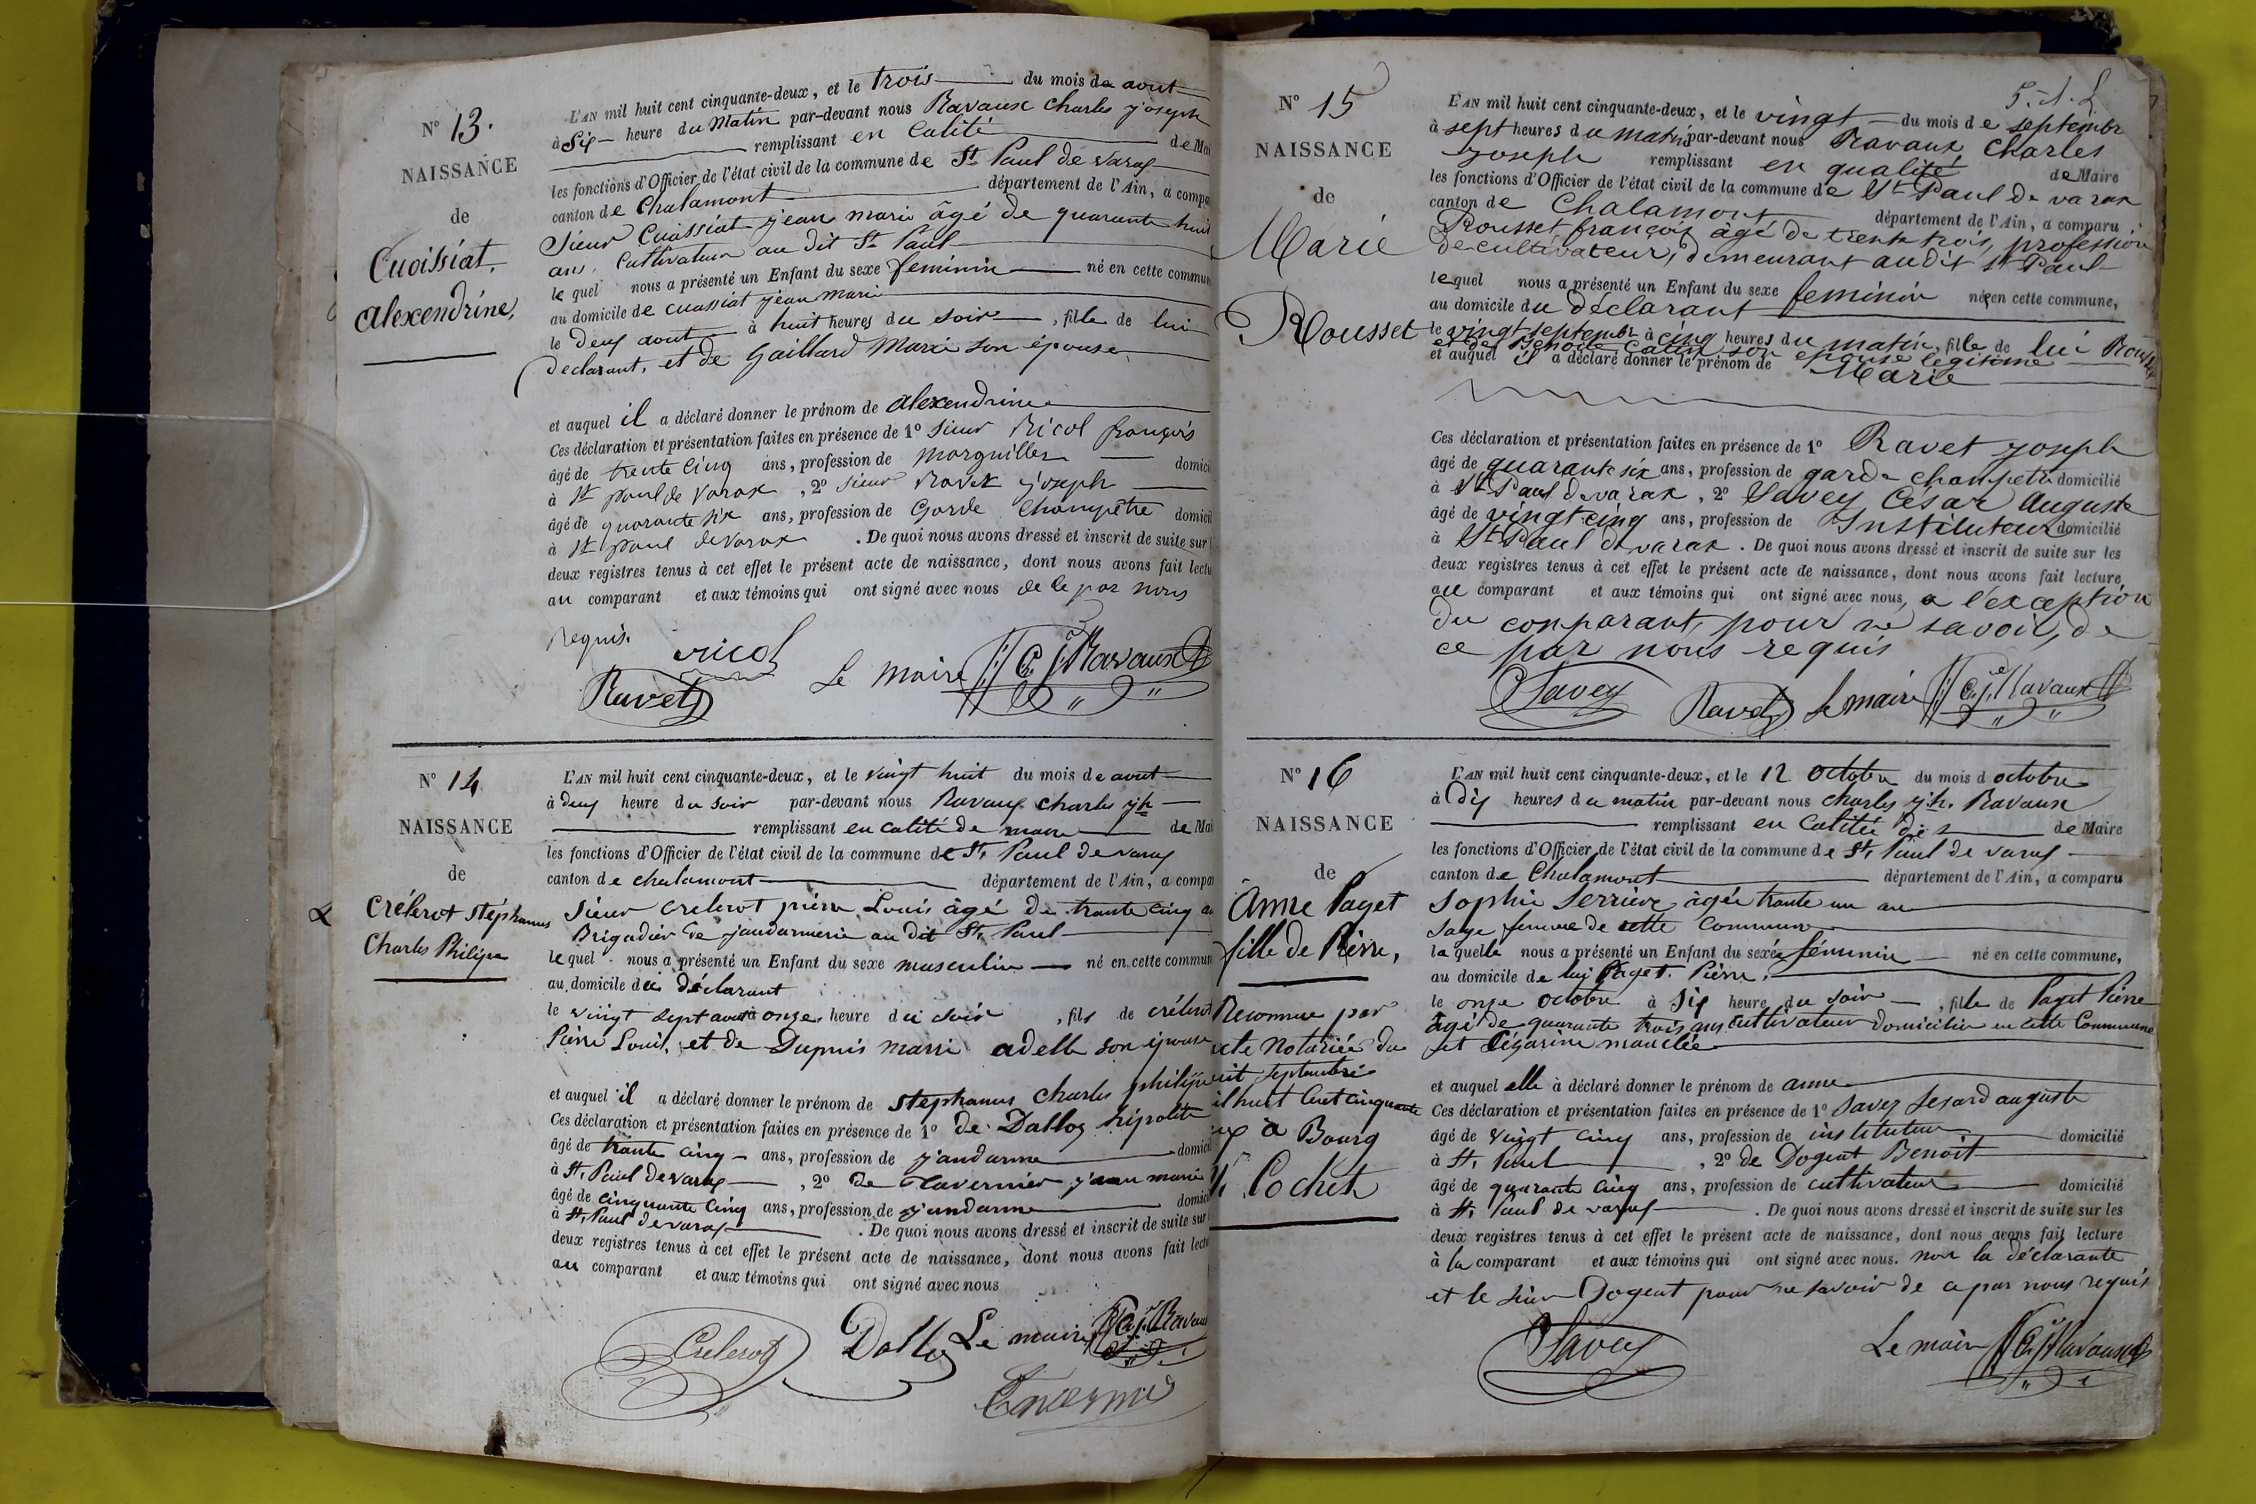 N° 13.
NAISSANCE
de
Cuoissiat,
alexendrine,
L'AN mil huit cent cinquante-deux, et le trois du mois de aout
à Six heure du Matin par-devant nous Ravaux Charles joseph
remplissant en Calité de Mai
les fonctions d'Officier de l'état civil de la commune de St Paul de varax
canton de Chalamont département de l'Ain, a compa
Sieur Cuassiat jean marie âgé de quarante huit
ans, Cultivateur au dit St Paul
le quel nous a présenté un Enfant du sexe feminin né en cette commun
au domicile de cuassiat jean marie
le deux aout à huit heures du soir, fille de lui
declarant, et de Gaillard Marie son épouse,
et auquel il a déclaré donner le prénom de alexendrine
Ces déclaration et présentation faites en présence de 1° sieur Ricol françois
âgé de trente cinq ans, profession de Marguiller domici
à St paul de Varax, 2° sieur Ravet joseph
âgé de quarante six ans, profession de Garde Champêtre domicil
à St paul de Varax. De quoi nous avons dressé et inscrit de suite sur
deux registres tenus à cet effet le présent acte de naissance, dont nous avons fait lectu
au comparant et aux témoins qui ont signé avec nous de le par nous
requis.
Ricol
Ravet Le Maire C. j. Ravaux
N° 14
NAISSANCE
de
Crélerot Stéphanus
Charles Philipe
L'AN mil huit cent cinquante-deux, et le vingt huit du mois de aout
à deux heure du soir par-devant nous Ravaux charles jh
remplissant en calité de maire de Mai
les fonctions d'Officier de l'état civil de la commune de St, Paul de varax
canton de chalamont département de l'Ain, a compar
Sieur crelerot pierre Louis âgé de trante cinq an
Brigadier de jandarmerie au dit St, Paul
le quel nous a présenté un Enfant du sexe masculin né en cette commun
au domicile du déclarant
le vingt sept aout à onze heure du soir, fils de crélerot
Pierre Louis, et de Dupuis marie adelle son épouse
et auquel il a déclaré donner le prénom de stephanus charles philipe
Ces déclaration et présentation faites en présence de 1° de Dalloz hipolite
âgé de trante cinq ans, profession de jandarme domici
à St, Paul de varax, 2° de tavernier jean marie
âgé de cinquante cinq ans, profession de jandarme domici
à St, Paul de varax. De quoi nous avons dressé et inscrit de suite sur
deux registres tenus à cet effet le présent acte de naissance, dont nous avons fait lectu
au comparant et aux témoins qui ont signé avec nous
Crelerot Dalloz Le maire C. j. Ravaux
Tavernier
N° 15
NAISSANCE
de
Marie
Rousset
L'AN mil huit cent cinquante-deux, et le vingt du mois de septembre
à sept heures du matin par-devant nous Ravaux Charles
Joseph remplissant en qualité de Maire
les fonctions d'Officier de l'état civil de la commune de St Paul de varax
canton de Chalamont département de l'Ain, a comparu
Rousset françois âgé de trente trois, profession
de cultivateur, demeurant audit St Paul
lequel nous a présenté un Enfant du sexe feminin né en cette commune,
au domicile du déclarant
le vingt septembre à cinq heures du matin, fille de lui Rousset
et de Benoite Catin son épouse légitime
et auquel il a déclaré donner le prénom de Marie
Ces déclaration et présentation faites en présence de 1° Ravet joseph
âgé de quarante six ans, profession de garde champetre domicilié
à St Paul de varax, 2° Savey César Auguste
âgé de vingt cinq ans, profession de Instituteur domicilié
à St Paul de varax. De quoi nous avons dressé et inscrit de suite sur les
deux registres tenus à cet effet le présent acte de naissance, dont nous avons fait lecture
au comparant et aux témoins qui ont signé avec nous, a l'exception
du comparant, pour ne savoir, de
ce par nous requis
Savey Ravet Le maire C. j. Ravaux
N° 16
NAISSANCE
de
Anne Paget
fille de Pierre,
Reconnue par
acte Notariée du
huit septembre
mil huit Cent cinquante
à Bourg
Cochet
L'AN mil huit cent cinquante-deux, et le 12 octobre du mois d octobre
à Dix heures du matin par-devant nous charles jh. Ravaux
remplissant en Calitée de Maire
les fonctions d'Officier de l'état civil de la commune de St, Paul de varax
canton de Chalamont département de l'Ain, a comparu
Sophie Serriere âgée trante un an
Sage femme de cette Commune
laquelle nous a présenté un Enfant du sexe féminin né en cette commune,
au domicile de lui Paget Pierre,
le onze octobre à six heure du soir, fille de Paget Pierre
âgé de quarante trois ans cultivateur domicilier en cette Commune
et
et auquel elle à déclaré donner le prénom de anne
Ces déclaration et présentation faites en présence de 1° Savey Sesard auguste
âgé de vingt cinq ans, profession de instituteur domicilié
à St, Paul, 2° de Dogent Benoit
âgé de quarante cinq ans, profession de cultivateur domicilié
à St, Paul de varax. De quoi nous avons dressé et inscrit de suite sur les
deux registres tenus à cet effet le présent acte de naissance, dont nous avons fait lecture
à la comparant et aux témoins qui ont signé avec nous. non la déclarante
et le sieur Dogent pour ne savoir de ce par nous requis
Savey Le maire C. j. Ravaux